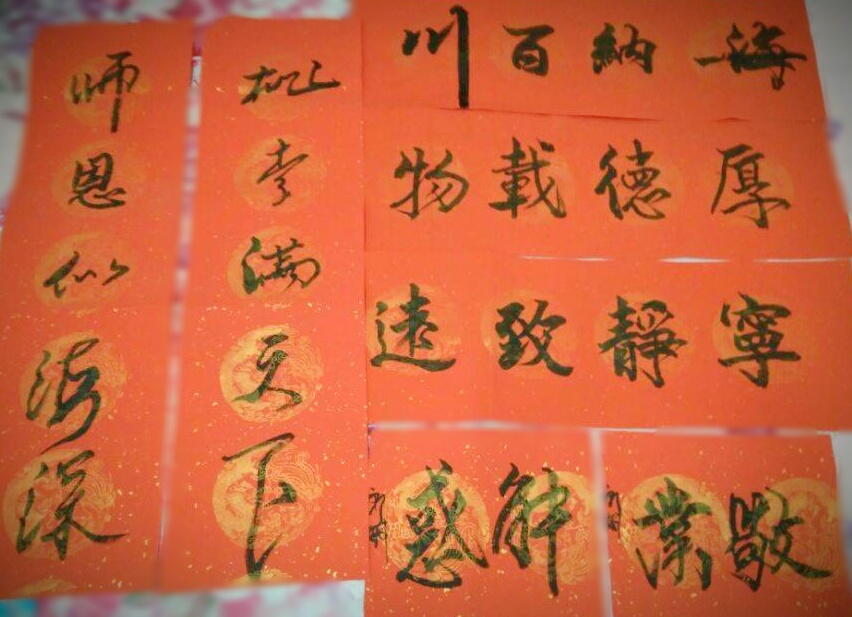 海納百川
厚德載物
寧靜致遠
敬業
解惑
桃李满天下
师恩似海深